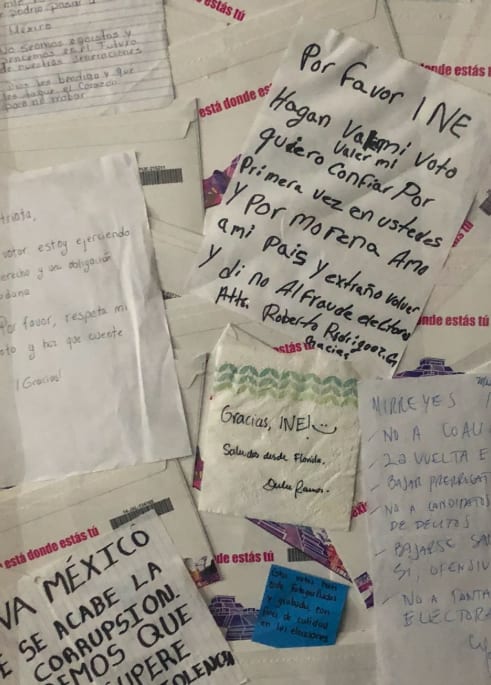 podría pasar a
México
No seamos egoistas y
pensemos en el futuro
de nuestras generaciones
Dios les bendiga y que
les toque el corazon
para no robar
está donde estás tú
Por favor INE
Hagan Valer mi voto
Valer mi
quiero confiar Por
Primera vez en ustedes
y Por morena Amo
ami Pais y extraño volver
y di no Al fraude electoral
Atta. Roberto Rodriguez G
Gracias
nde estás tú
estás tú
votar estoy ejerciendo
derecho y una obligación
dadana
Por favor, respeta mi
voto y haz que cuente
¡Gracias!
Gracias, INE!
Saludos desde Florida.
Dulce Ramos.
MIRREYES
- NO A COALI
- 2a VUELTA E
- BAJAR PRERROGAT
- NO A CANDIDATOS
DE DELITOS
- BAJARSE
SI, OFENSIV
- NO A TANTA
ELECTORA
está donde estás tú
de estás tú
VA MÉXICO
E SE ACABE LA
CORRUPSION.
EMOS QUE
UPERE
VIOLENCIA
votos han
sido fotografiados
y grabados con
fines de calidad
en las elecciones